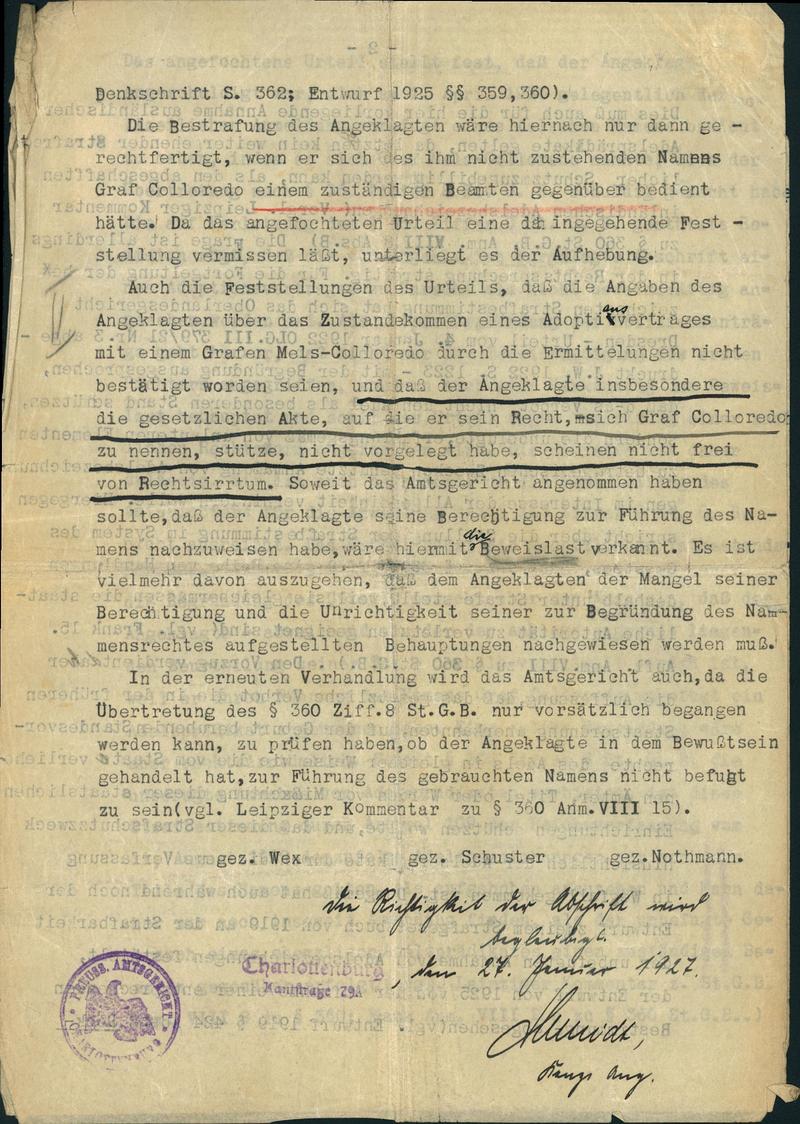 Denkschrift S. 362; Entwurf 1925 §§ 359,360).
Die Bestrafung des Angeklagten wäre hiernach nur dann ge -
rechtfertigt, wenn er sich des ihm nicht zustehenden Namens
Graf Colloredo einem zuständigen Beamten gegenüber bedient
hätte. Da das angefochteten Urteil eine da ingegehende Fest -
stellung vermissen läßt, unterliegt es der Aufhebung.
Auch die Feststellungen des Urteils, daß die Angaben des
Angeklagten über das Zustandekommen eines Adoptionsvertrages
mit einem Grafen Mels-Colloredo durch die Ermittelungen nicht
bestätigt worden seien, und daß der Angeklagte insbesondere
die gesetzlichen Akte, auf die er sein Recht, sich Graf Colloredo
zu nennen, stütze, nicht vorgelegt habe, scheinen nicht frei
von Rechtsirrtum. Soweit das Amtsgericht angenommen haben
sollte, daß der Angeklagte seine Berechtigung zur Führung des Na-
mens nachzuweisen habe, wäre hiermit die Beweislast verkannt. Es ist
vielmehr davon auszugehen, daß dem Angeklagten der Mangel seiner
Berechtigung und die Unrichtigkeit seiner zur Begründung des Nam-
mensrechtes aufgestellten Behauptungen nachgewiesen werden muß.
In der erneuten Verhandlung wird das Amtsgericht auch, da die
Übertretung des § 360 Ziff.8 St.G.B. nur vorsätzlich begangen
werden kann, zu prüfen haben, ob der Angeklagte in dem Bewußtsein
gehandelt hat, zur Führung des gebrauchten Namens nicht befugt
zu sein(vgl. Leipziger Kommentar zu § 360 Anm.VIII 15).
gez. Wex gez. Schuster gez. Nothmann.
Die Richtigkeit der Abschrift wird
beglaubigt.
Charlottenburg, den 27. Januar 1927.
Kantstraße 79
PREUSS. AMTSGERICHT
CHARLOTTENBURG
Schmidt,
Kanzl. Ang.